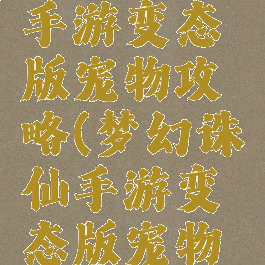 手游变态
版宠物攻
略(梦幻诛
仙手游变
态版宠物